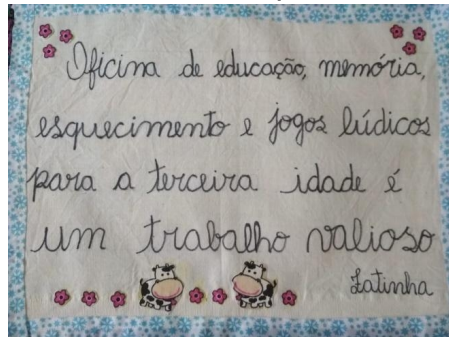 Oficina de educação, memória,
esquecimento e jogos lúdicos
para a terceira idade é
um trabalho valioso
Latinha